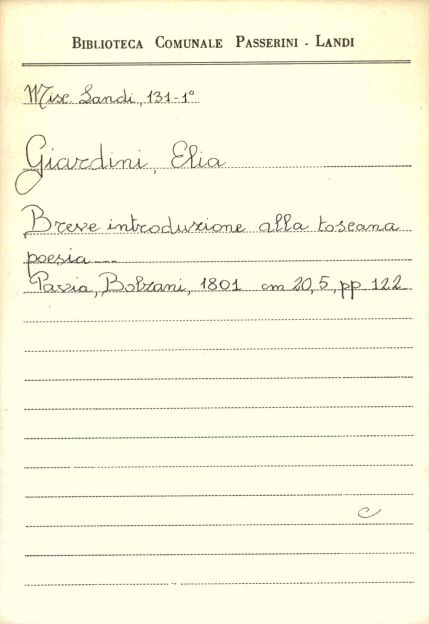 BIBLIOTECA COMUNALE PASSERINI - LANDI
Misc. Landi, 131-1°
Giardini, Elia
Breve introduzione alla toscana
poesia ...
Pavia, Bolzani, 1801 cm 20,5, pp 122
c